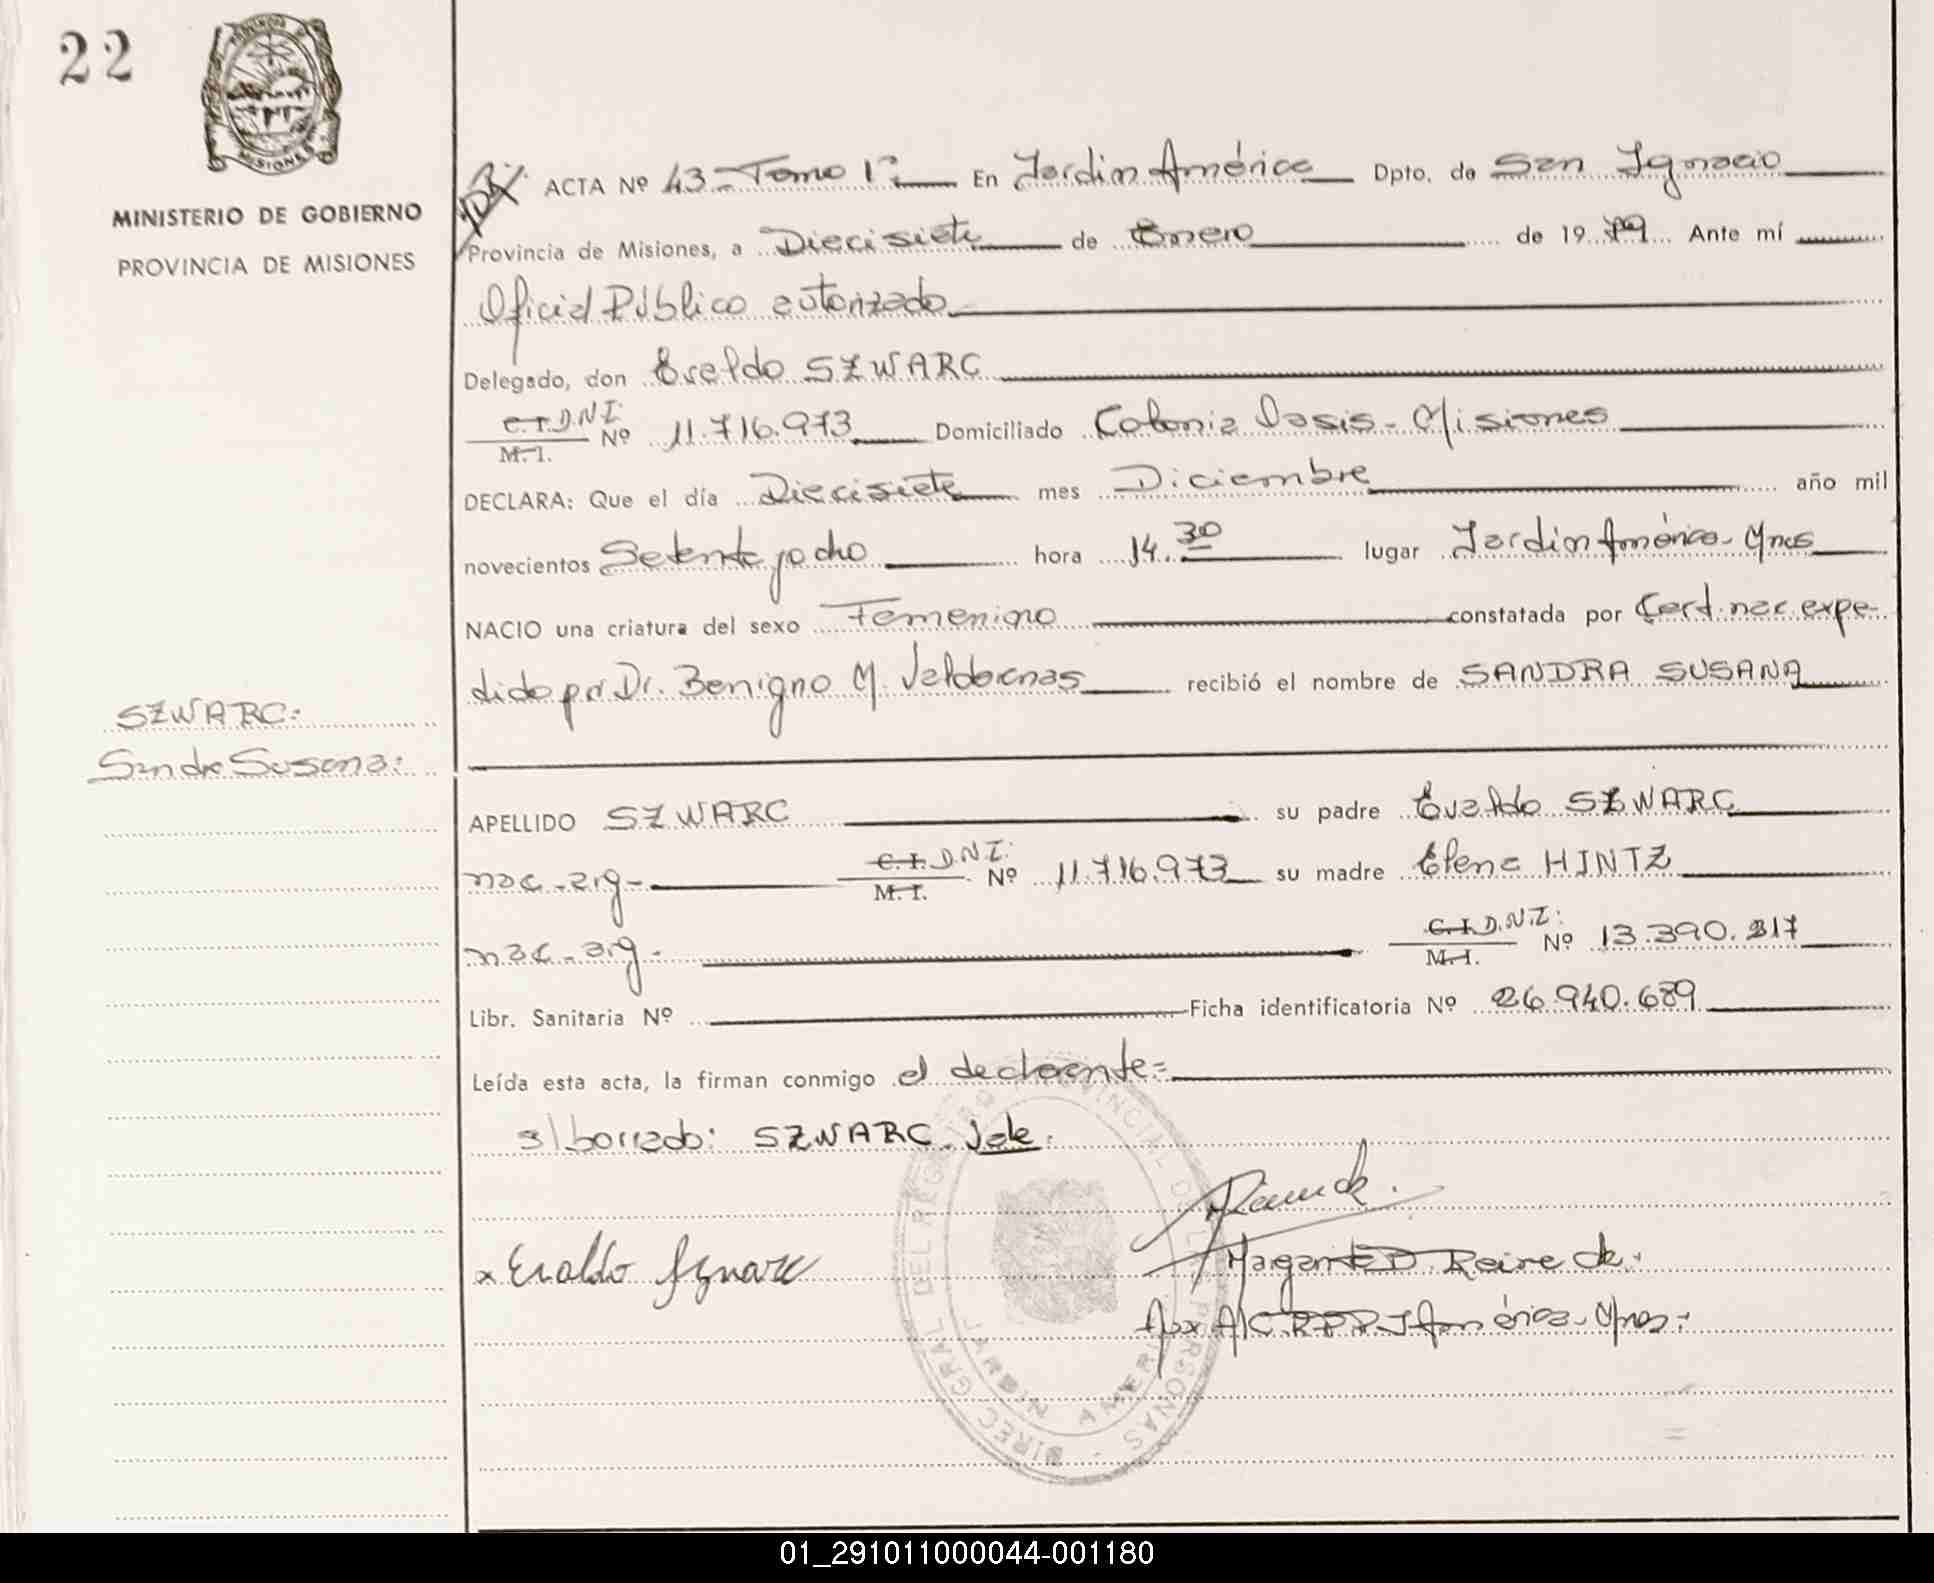 22
MISIONES
MINISTERIO DE GOBIERNO
PROVINCIA DE MISIONES
ACTA Nº 43 - Tomo 1º En Jardin América Dpto. de San Ignacio
Provincia de Misiones, a Diecisiete de Enero de 1979 Ante mí
Oficial Público autorizado
Delegado, don Evaldo SZWARC
C.I. D.N.I.
M.I. Nº 11.716.973 Domiciliado Colonia Oasis - Misiones
DECLARA: Que el día Diecisiete mes Diciembre año mil
novecientos Setenta y ocho hora 14.30 lugar Jardin América - Mnes
NACIO una criatura del sexo Femenino constatada por Cert. nac. expe-
dido por Dr. Benigno M. Valdovenas recibió el nombre de SANDRA SUSANA
SZWARC:
Sandra Susana:
APELLIDO SZWARC su padre Evaldo SZWARC
nac - arg - C.I. D.N.I:
M.I. Nº 11.716.973 su madre Elena HINTZ
nac - arg - C.I. D.N.I:
M.I. Nº 13.390.317
Libr. Sanitaria Nº Ficha identificatoria Nº 26.940.689
Leída esta acta, la firman conmigo el declarante =
s/borrado: SZWARC. Vale.
x Evaldo Szwarc
Reire de:
América - Mnes:
DIREC GRAL DEL REGISTRO PROVINCIAL DE LAS PERSONAS
JARDIN AMERICA
01_291011000044-001180